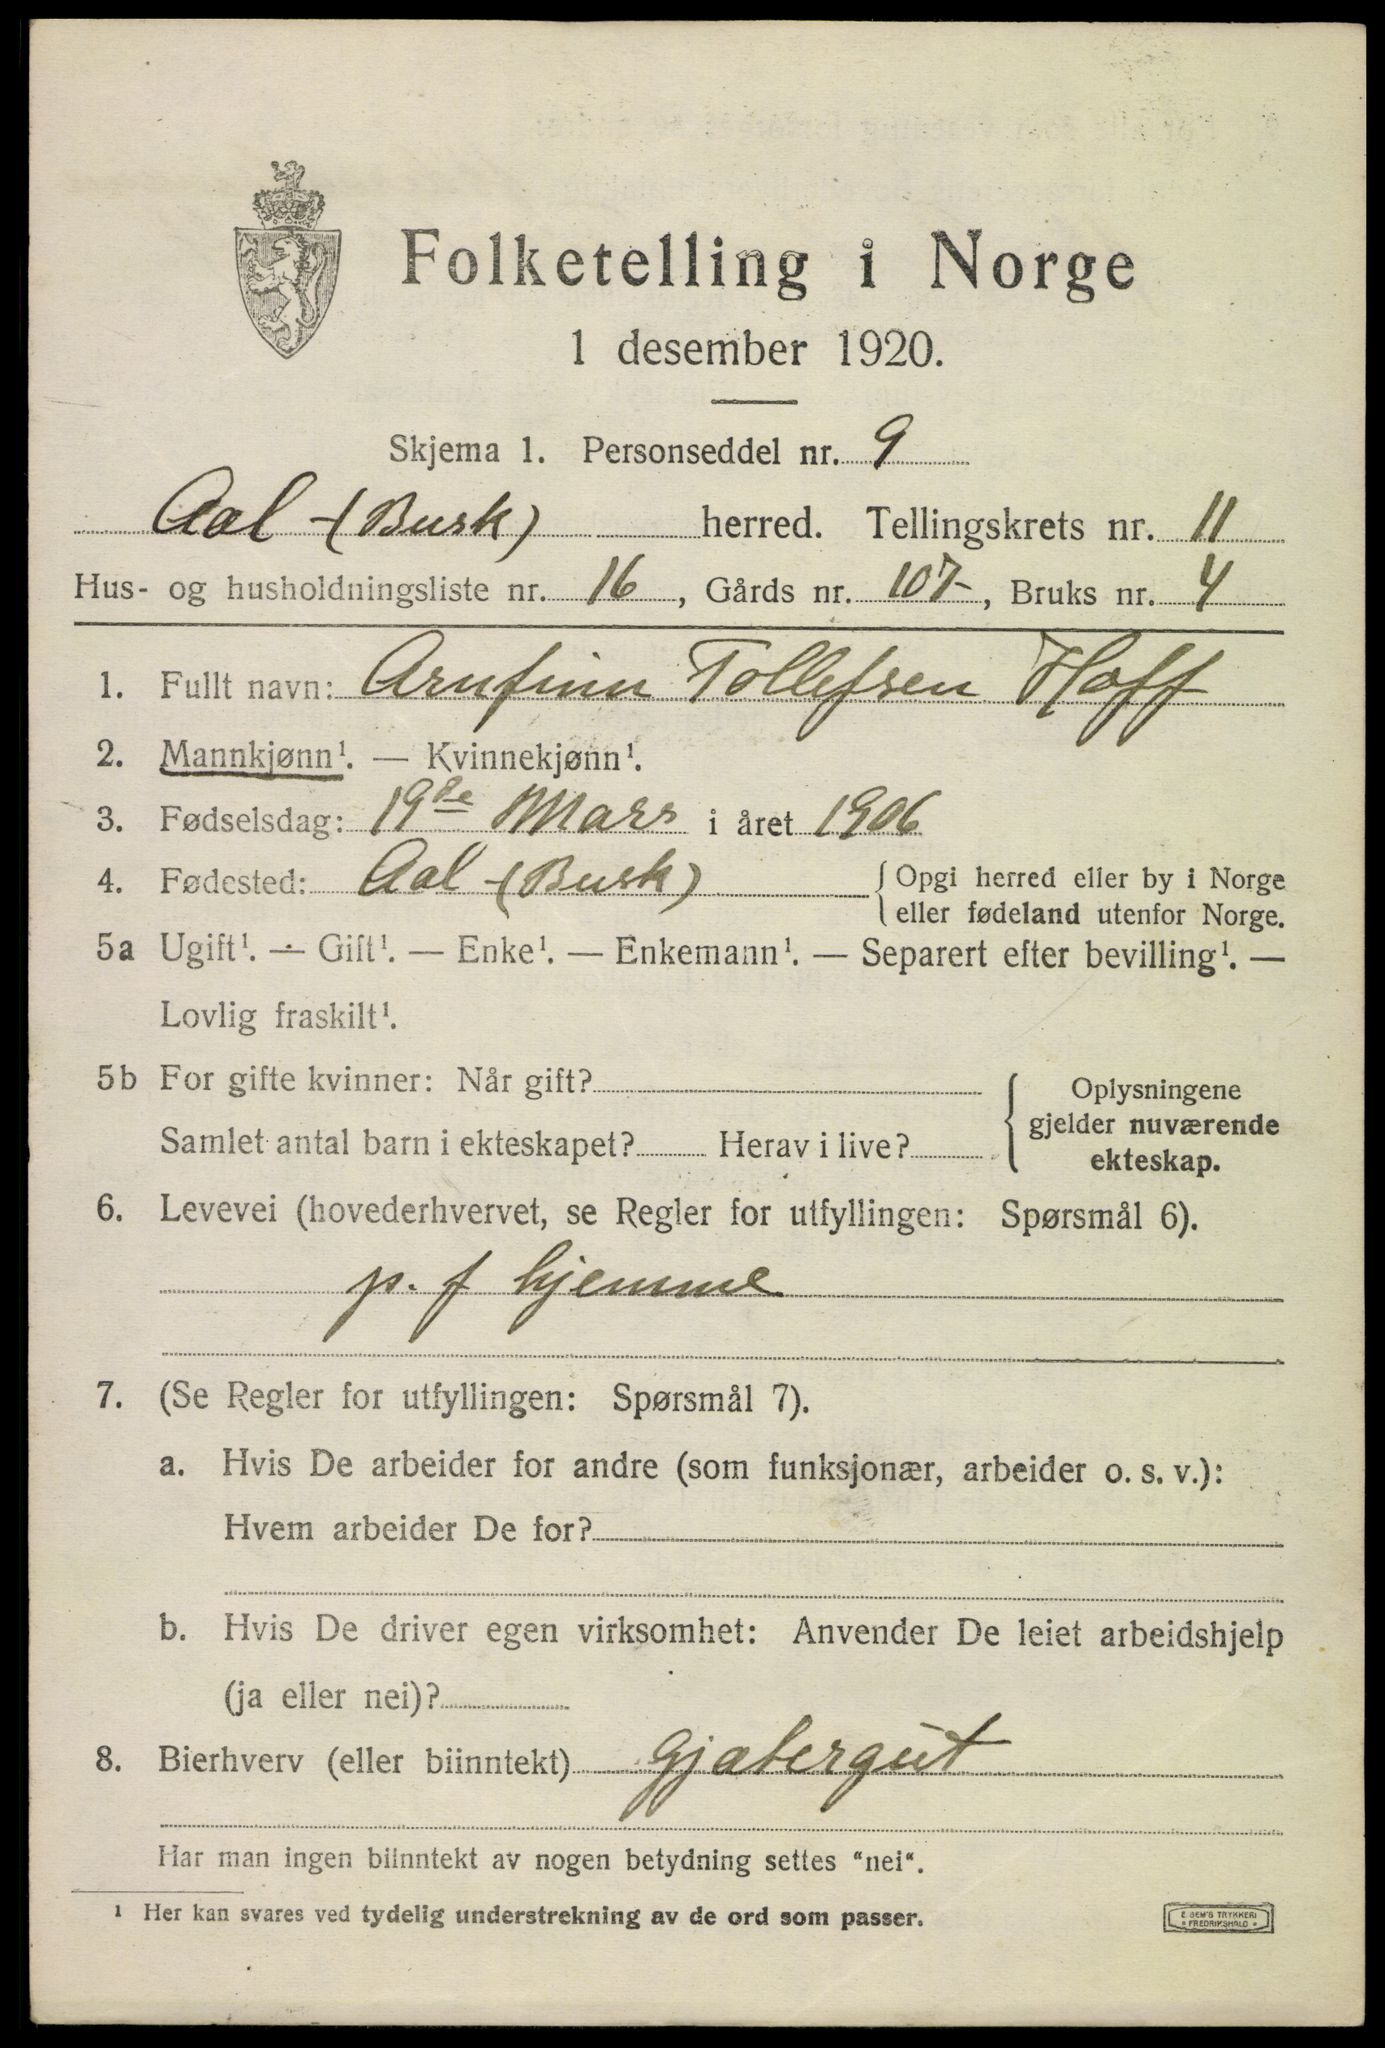 Folketelling i Norge
1 desember 1920.
Skjema 1. Personseddel nr. 9
Aal - (Busk) herred. Tellingskrets nr. 11
Hus- og husholdningsliste nr. 16, Gårds nr. 107-, Bruks nr. 4
1. Fullt navn: Arnfinn Tollefsen Hoff
2. Mannkjønn¹. — Kvinnekjønn¹.
3. Fødselsdag: 19de Mars i året 1906
4. Fødested: Aal - (Busk) { Opgi herred eller by i Norge
eller fødeland utenfor Norge.
5a Ugift¹. — Gift¹. — Enke¹. — Enkemann¹. — Separert efter bevilling¹. —
Lovlig fraskilt¹.
5b For gifte kvinner: Når gift?
Samlet antal barn i ekteskapet? Herav i live?
Oplysningene
gjelder nuværende
ekteskap.
6. Levevei (hovederhvervet, se Regler for utfyllingen: Spørsmål 6).
p. f hjemme
7. (Se Regler for utfyllingen: Spørsmål 7).
a. Hvis De arbeider for andre (som funksjonær, arbeider o. s. v.):
Hvem arbeider De for?
b. Hvis De driver egen virksomhet: Anvender De leiet arbeidshjelp
(ja eller nei)?
8. Bierhverv (eller biinntekt) gjætergut
Har man ingen biinntekt av nogen betydning settes "nei".
¹ Her kan svares ved tydelig understrekning av de ord som passer.
E. SEM'S TRYKKERI
FREDRIKSHALD